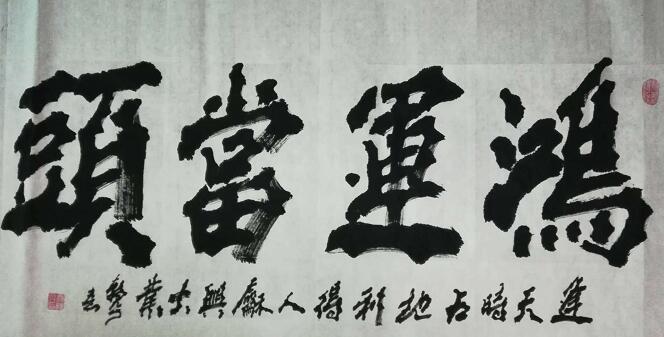 鴻運當頭
逢天時占地利得人龢興大業